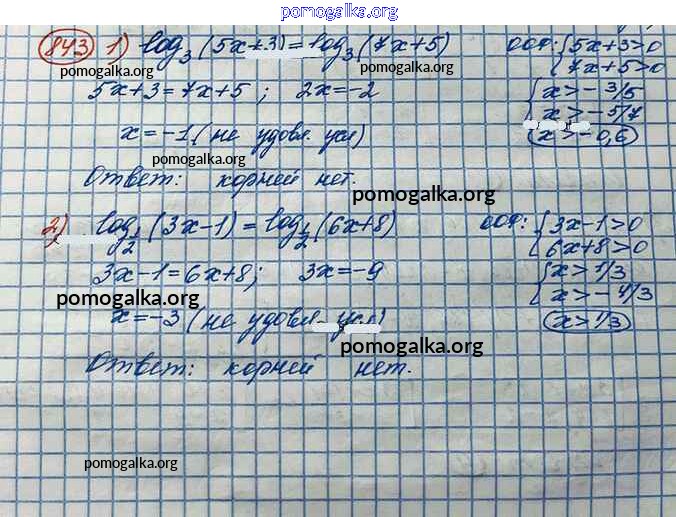 pomogalka.org
843 1) log₃(5x+3)=log₃(7x+5) ООФ: {5x+3>0
pomogalka.org 7x+5>0
pomogalka.org
5x+3=7x+5; 2x=-2 {x>-3/5
x>-5/7
x=-1 (не удовл. усл) x>-0,6
pomogalka.org
Ответ: корней нет.
pomogalka.org
2) log½(3x-1)=log½(6x+8) ООФ: {3x-1>0
6x+8>0
3x-1=6x+8; 3x=-9 {x>1/3
pomogalka.org x>-4/3
x=-3 (не удовл. усл) x>1/3
pomogalka.org
Ответ: корней нет.
pomogalka.org